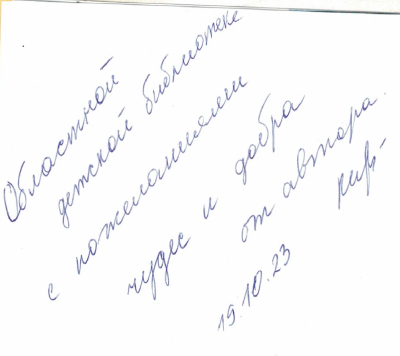 Областной
детской библиотеке
с пожеланиями
чудес и добра
от автора.
19.10.23